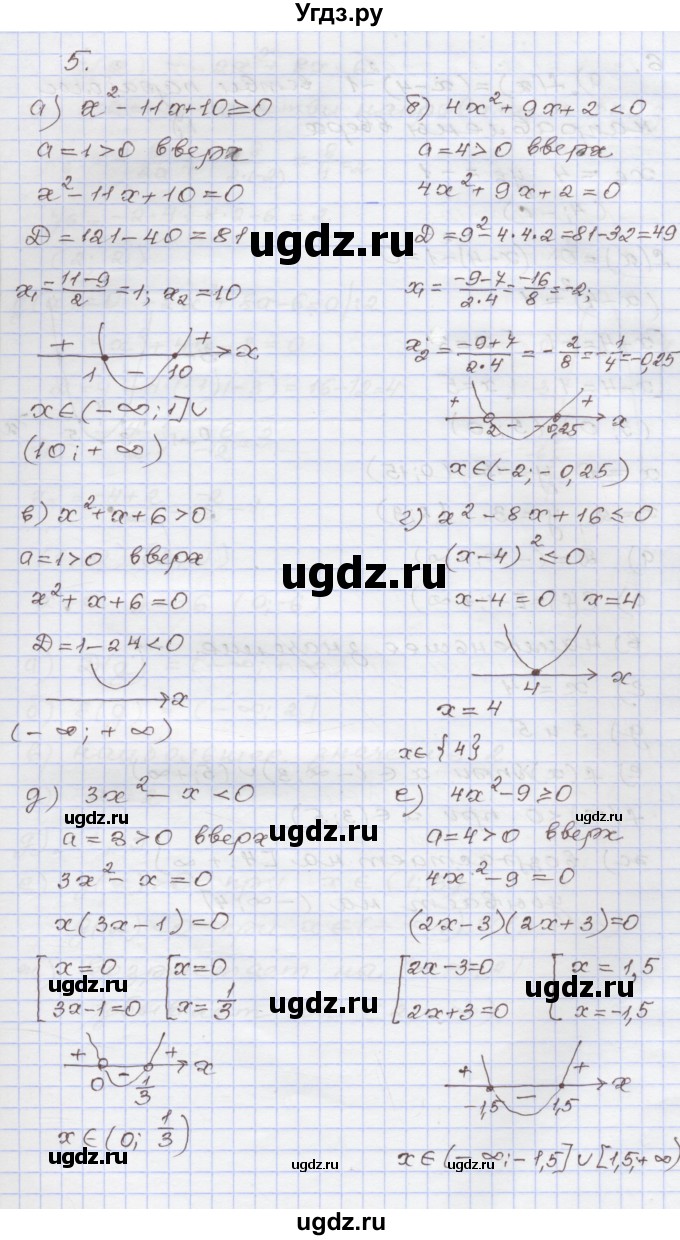 Угдз.ру
5.
а) x² - 11x + 10 ≥ 0
a = 1 > 0 вверх
x² - 11x + 10 = 0
D = 121 - 40 = 81
x₁ = (11-9)/2 = 1; x₂ = 10
+ + x
1 - 10
x ∈ (-∞; 1] ∪
(10; +∞)
б) 4x² + 9x + 2 < 0
a = 4 > 0 вверх
4x² + 9x + 2 = 0
D = 9² - 4·4·2 = 81 - 32 = 49
x₁ = (-9-7)/(2·4) = -16/8 = -2;
x₂ = (-9+7)/(2·4) = -2/8 = -1/4 = -0,25
+ + x
-2 - -0,25
x ∈ (-2; -0,25)
в) x² + x + 6 > 0
a = 1 > 0 вверх
x² + x + 6 = 0
D = 1 - 24 < 0
x
(-∞; +∞)
г) x² - 8x + 16 ≤ 0
(x-4)² ≤ 0
x - 4 = 0 x = 4
4 x
x = 4
x ∈ {4}
д) 3x² - x < 0
a = 3 > 0 вверх
3x² - x = 0
x(3x-1) = 0
[x = 0 [x = 0
3x - 1 = 0 x = 1/3
+ - + x
0 1/3
x ∈ (0; 1/3)
е) 4x² - 9 ≥ 0
a = 4 > 0 вверх
4x² - 9 = 0
(2x-3)(2x+3) = 0
[2x - 3 = 0 [x = 1,5
2x + 3 = 0 x = -1,5
+ - + x
-1,5 1,5
x ∈ (-∞; -1,5] ∪ [1,5; +∞)
ugdz.ru
ugdz.ru
ugdz.ru
ugdz.ru
ugdz.ru
ugdz.ru
ugdz.ru
ugdz.ru
ugdz.ru
ugdz.ru
ugdz.ru
ugdz.ru